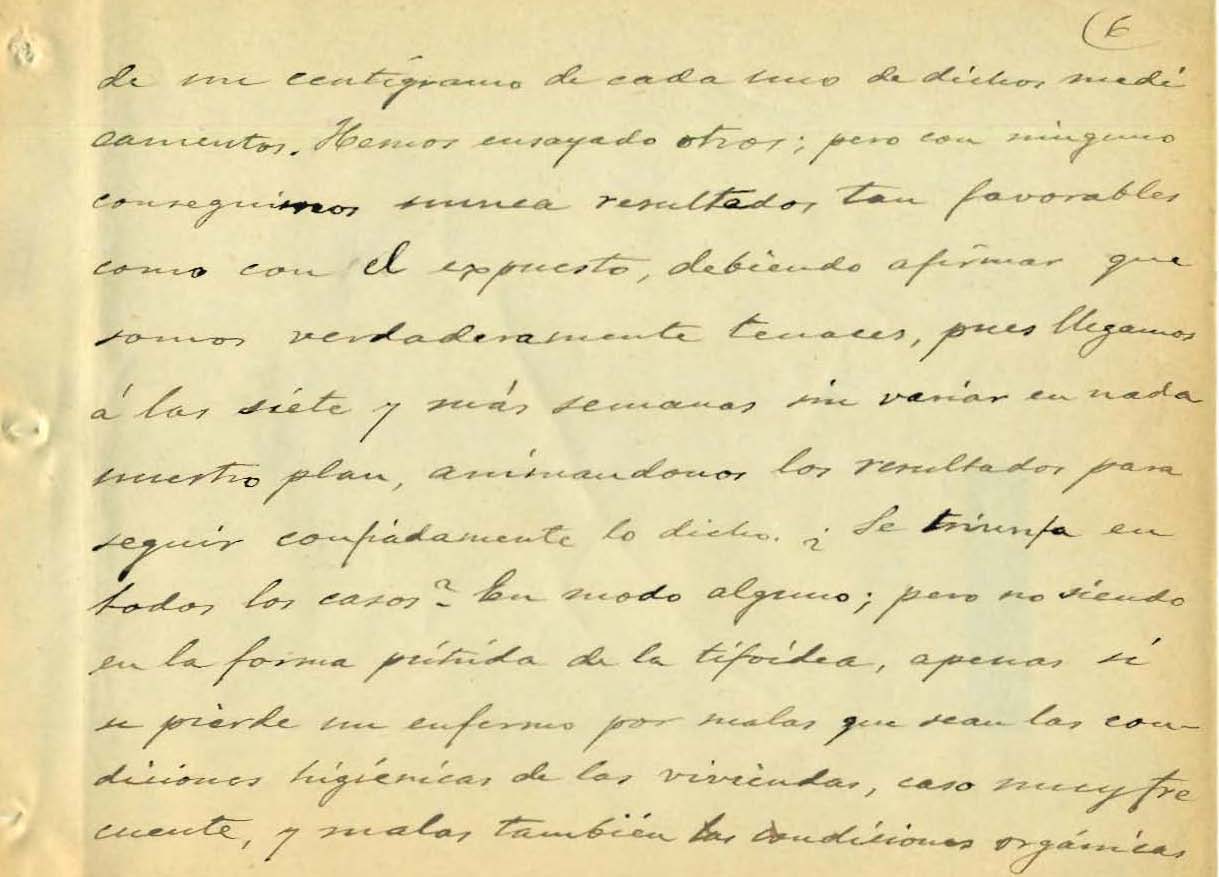 (6
de un centígramo de cada uno de dichos medi
camentos. Hemos ensayado otros; pero con ninguno
conseguimos nunca resultados tan favorables
como con el expuesto, debiendo afirmar que
somos verdaderamente tenaces, pues llegamos
á las siete y más semanas sin variar en nada
nuestro plan, animandonos los resultados para
seguir confiadamente lo dicho. ¿Se triunfa en
todos los casos? En modo alguno; pero no siendo
en la forma pútrida de la tifoidea, apenas si
se pierde un enfermo por malas que sean las con-
diciones higiénicas de las viviendas, caso muy fre
cuente, y malas también las condiciones orgánicas